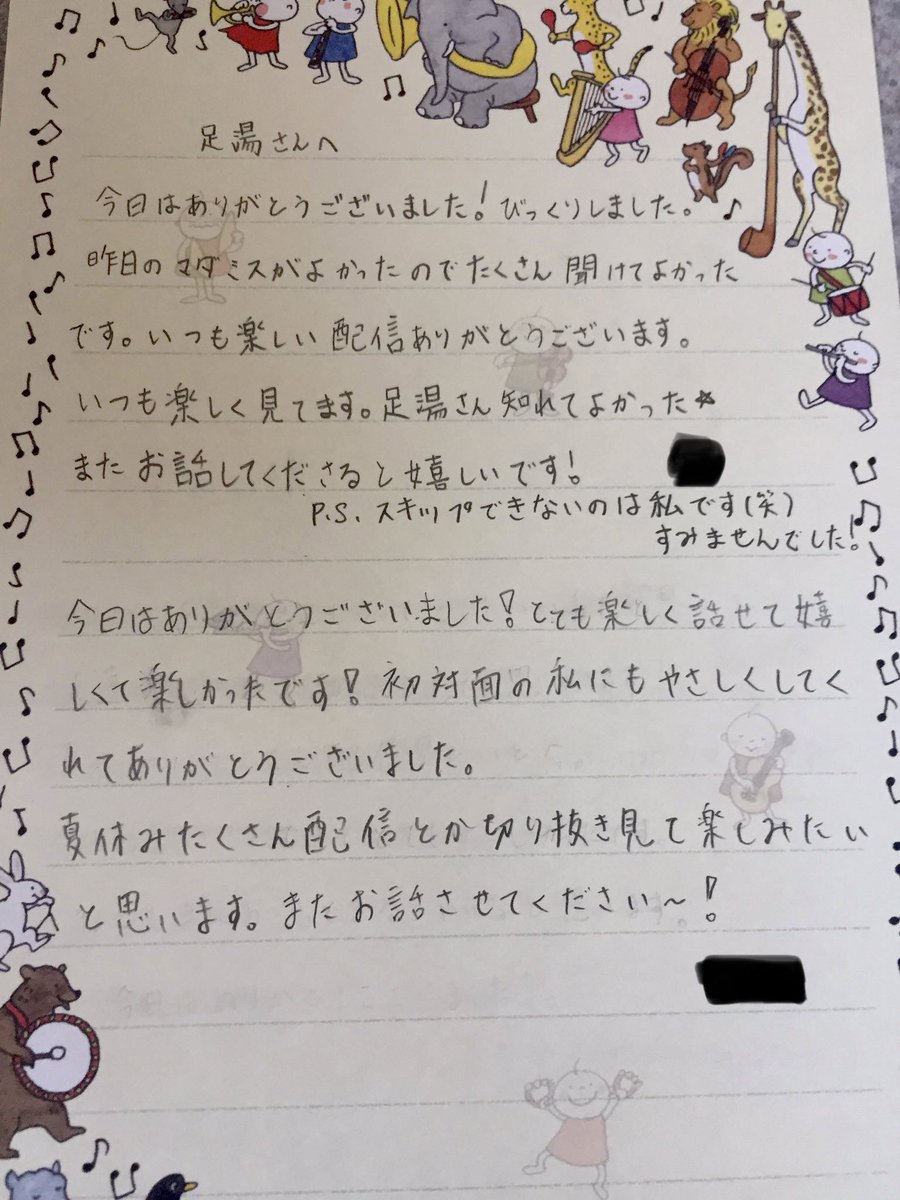 足湯さんへ
今日はありがとうございました!びっくりしました。
昨日のマダミスがよかったのでたくさん聞けてよかった
です。いつも楽しい配信ありがとうございます。
いつも楽しく見てます。足湯さん知れてよかった☆
またお話してくださると嬉しいです!
P.S.スキップできないのは私です(笑)
すみませんでした!
今日はありがとうございました!とても楽しく話せて嬉
しくて楽しかったです!初対面の私にもやさしくしてく
れてありがとうございました。
夏休みたくさん配信とか切り抜き見て楽しみたい
と思います。またお話させてください〜!